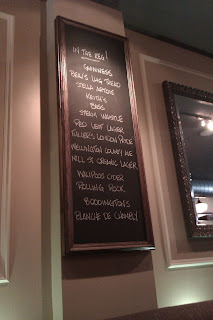 IN THE KEG!
GUINNESS
STELLA ARTOIS
KEITH'S
BASS
STEAM WHISTLE
RED LEAF LAGER
FULLER'S LONDON PRIDE
WELLINGTON COUNTY ALE
MILL ST ORGANIC LAGER
WAUPOOS CIDER
ROLLING ROCK
BODDINGTONS
BLANCHE DE CHAMBLY